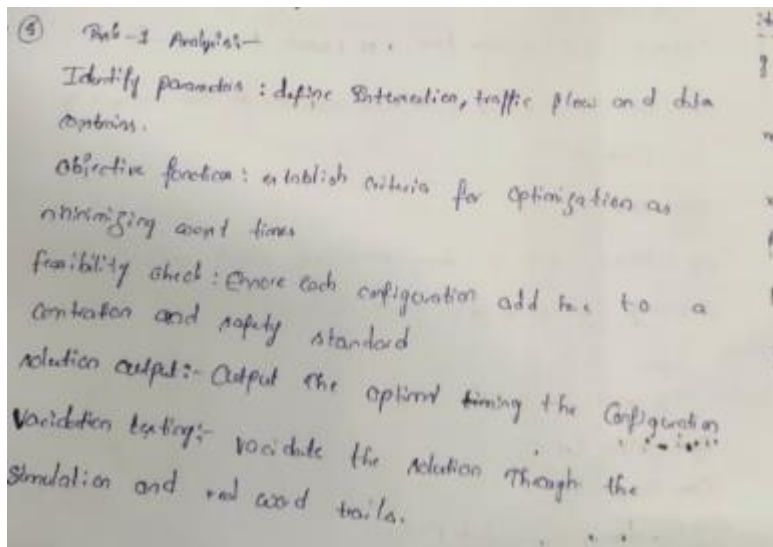 ⑤ Task-1 Analysis:-
Identify parameters : define Intersection, traffic flow and data
contrains.
objective function : establish criteria for optimization as
minimizing wont times
feasibility check : Ensore each configuration add to a
contration and safety standard
solution output:- Output the optimal timing the Configuration
Vacidation testing:- vacidate the solution Though the
Simulation and real word trails.